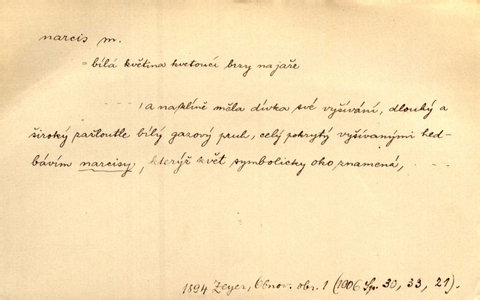 narcis m.
= bílá květina kvetoucí brzy na jaře
- - - - , a na klíně měla dívka své vyšívání, dlouhý a
široký zažloutle bílý gazový pruh, celý pokrytý vyšívanými hed-
bávím narcisy, kterýž květ symbolicky oko znamená, - - - -
1894 Zeyer, Obnov. obr. 1 (1906 Sp. 30, 33, 21).